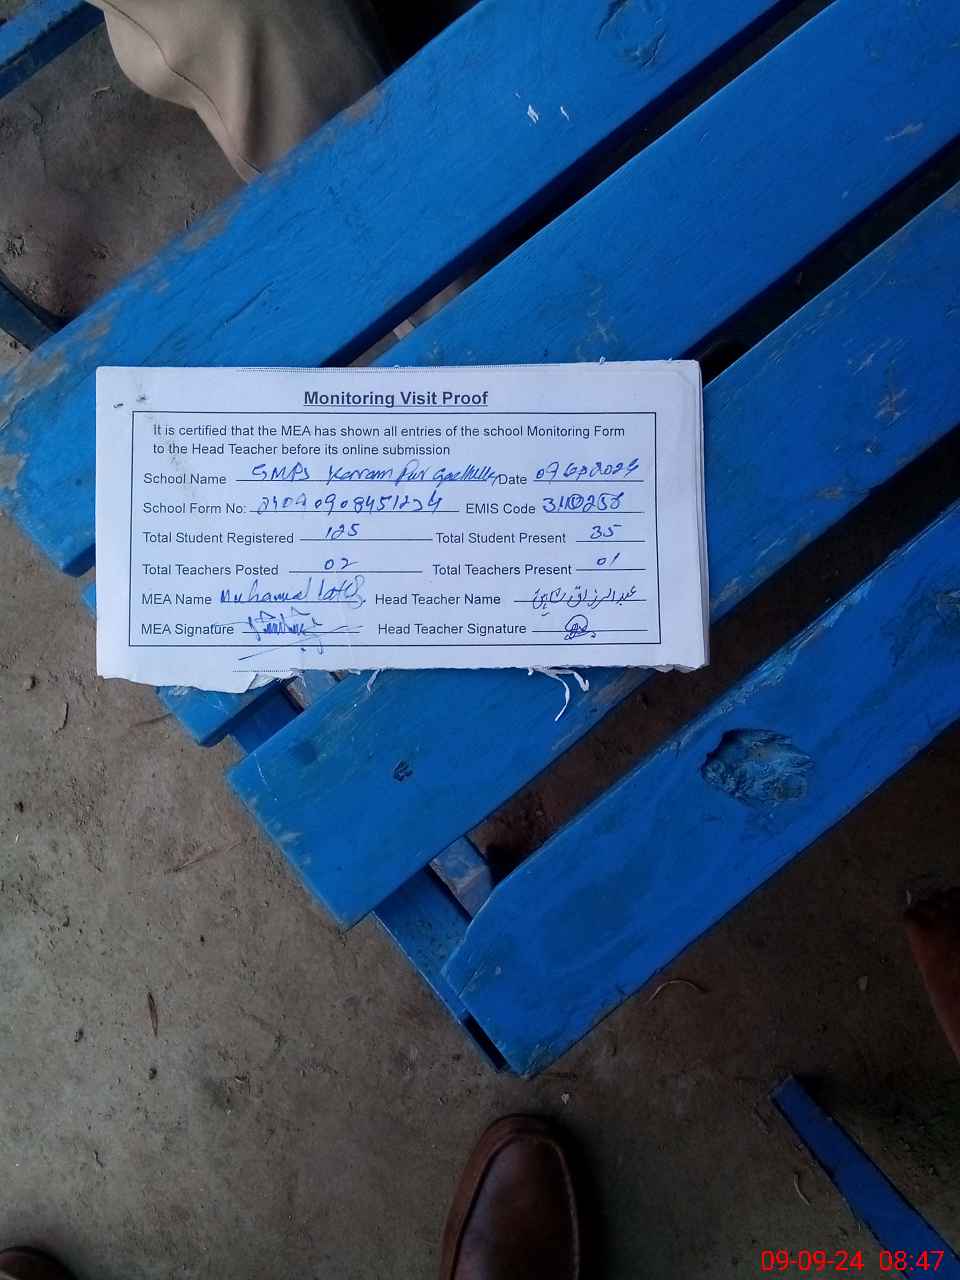 Monitoring Visit Proof
It is certified that the MEA has shown all entries of the school Monitoring Form
to the Head Teacher before its online submission
School Name GMPS Karram Pur Date
School Form No: EMIS Code
Total Student Registered 125 Total Student Present 35
Total Teachers Posted 02 Total Teachers Present 01
MEA Name Muhammad Head Teacher Name عبدالرزاق
MEA Signature Head Teacher Signature
09-09-24 08:47